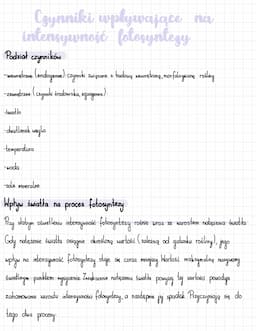 Czynniki wpływające na
intensywność fotosyntezy
Podział czynników
-wewnętrzne (endogenne) czynniki związane z budową zewnętrzną, morfologiczną rośliny
-zewnętrzne (czynniki środowiska, egzogenne)
-światło
-dwutlenek węgla
-temperatura
-woda
-sole mineralne
Wpływ światła na proces fotosyntezy
Przy słabym oświetleniu intensywność fotosyntezy rośnie wraz ze wzrostem natężenia światła.
Gdy natężenie światła osiągnie określoną wartość (zależną od gatunku rośliny), jego
wpływ na intensywność fotosyntezy staje się coraz mniejszy. Wartość maksymalną nazywamy
świetlnym punktem wysycenia. Zwiększanie natężenia światła powyżej tej wartości powoduje
zahamowanie wzrostu intensywności fotosyntezy, a następnie jej spadek. Przyczyniają się do
tego dwa procesy: